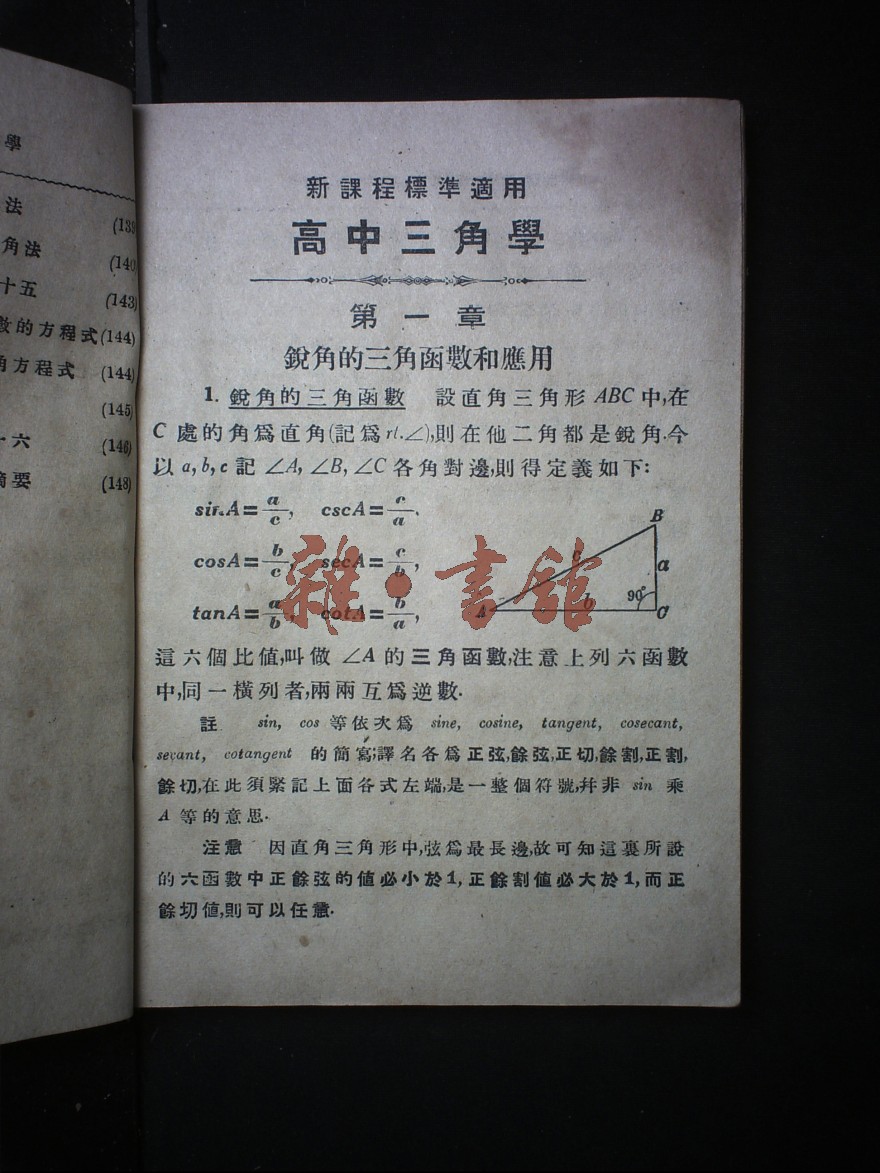 學
法 (139
角法 (140
十五 (143)
數的方程式 (144)
角方程式 (144)
(145)
十六 (146)
摘要 (148)
新課程標準適用
高中三角學
第一章
銳角的三角函數和應用
1. 銳角的三角函數 設直角三角形 ABC 中,在
C 處的角爲直角(記爲 rt.∠),則在他二角都是銳角.今
以 a, b, c 記 ∠A, ∠B, ∠C 各角對邊,則得定義如下:
sin A = a/c, csc A = c/a.
cos A = b/c, sec A = c/b,
tan A = a/b, cot A = b/a,
B
c
a
90°
A
b
C
雜·書館
這六個比値,叫做 ∠A 的三角函數,注意上列六函數
中,同一橫列者,兩兩互爲逆數.
註 sin, cos 等依次爲 sine, cosine, tangent, cosecant,
secant, cotangent 的簡寫;譯名各爲正弦,餘弦,正切,餘割,正割,
餘切,在此須緊記上面各式左端,是一整個符號,幷非 sin 乘
A 等的意思.
注意 因直角三角形中,弦爲最長邊,故可知這裏所設
的六函數中正餘弦的値必小於1,正餘割値必大於1,而正
餘切値,則可以任意.